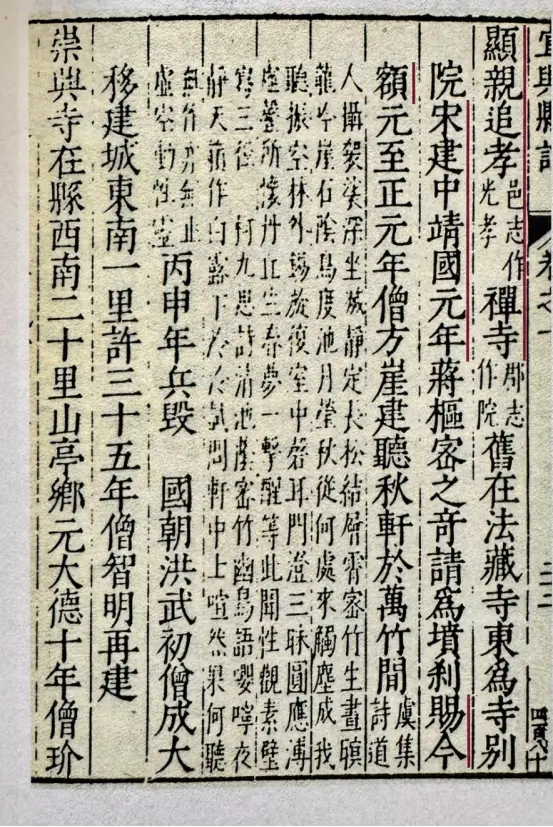 宜興縣誌
卷之一
顯親追孝邑志作光孝禪寺郡志作院舊在法藏寺東為寺別
院宋建中靖國元年蔣樞密之奇請為墳刹賜今
額元至正元年僧方崖建聽秋軒於萬竹間虞集詩道
人攝袈裟深坐城靜定長松結層霄密竹生晝暝
龍吟崖石陰鳥度池月瑩秋從何處來觸塵成我
聽振空林外錫旋復室中磬耳門澄三昧圓應溥
塵養所丹丘生春夢一擊醒等此聞性觀素壁
寫三徑 柯九思詩清池蔭密竹幽鳥語嚶嚀夜
靜天籟作白露下泠泠試問軒中上喧然果何聽
無竹亦無止虛空動性靈丙申年兵毀 國朝洪武初僧成大
移建城東南一里許三十五年僧智明再建
崇興寺在縣西南二十里山亭鄉元大德十年僧玠
四百八十